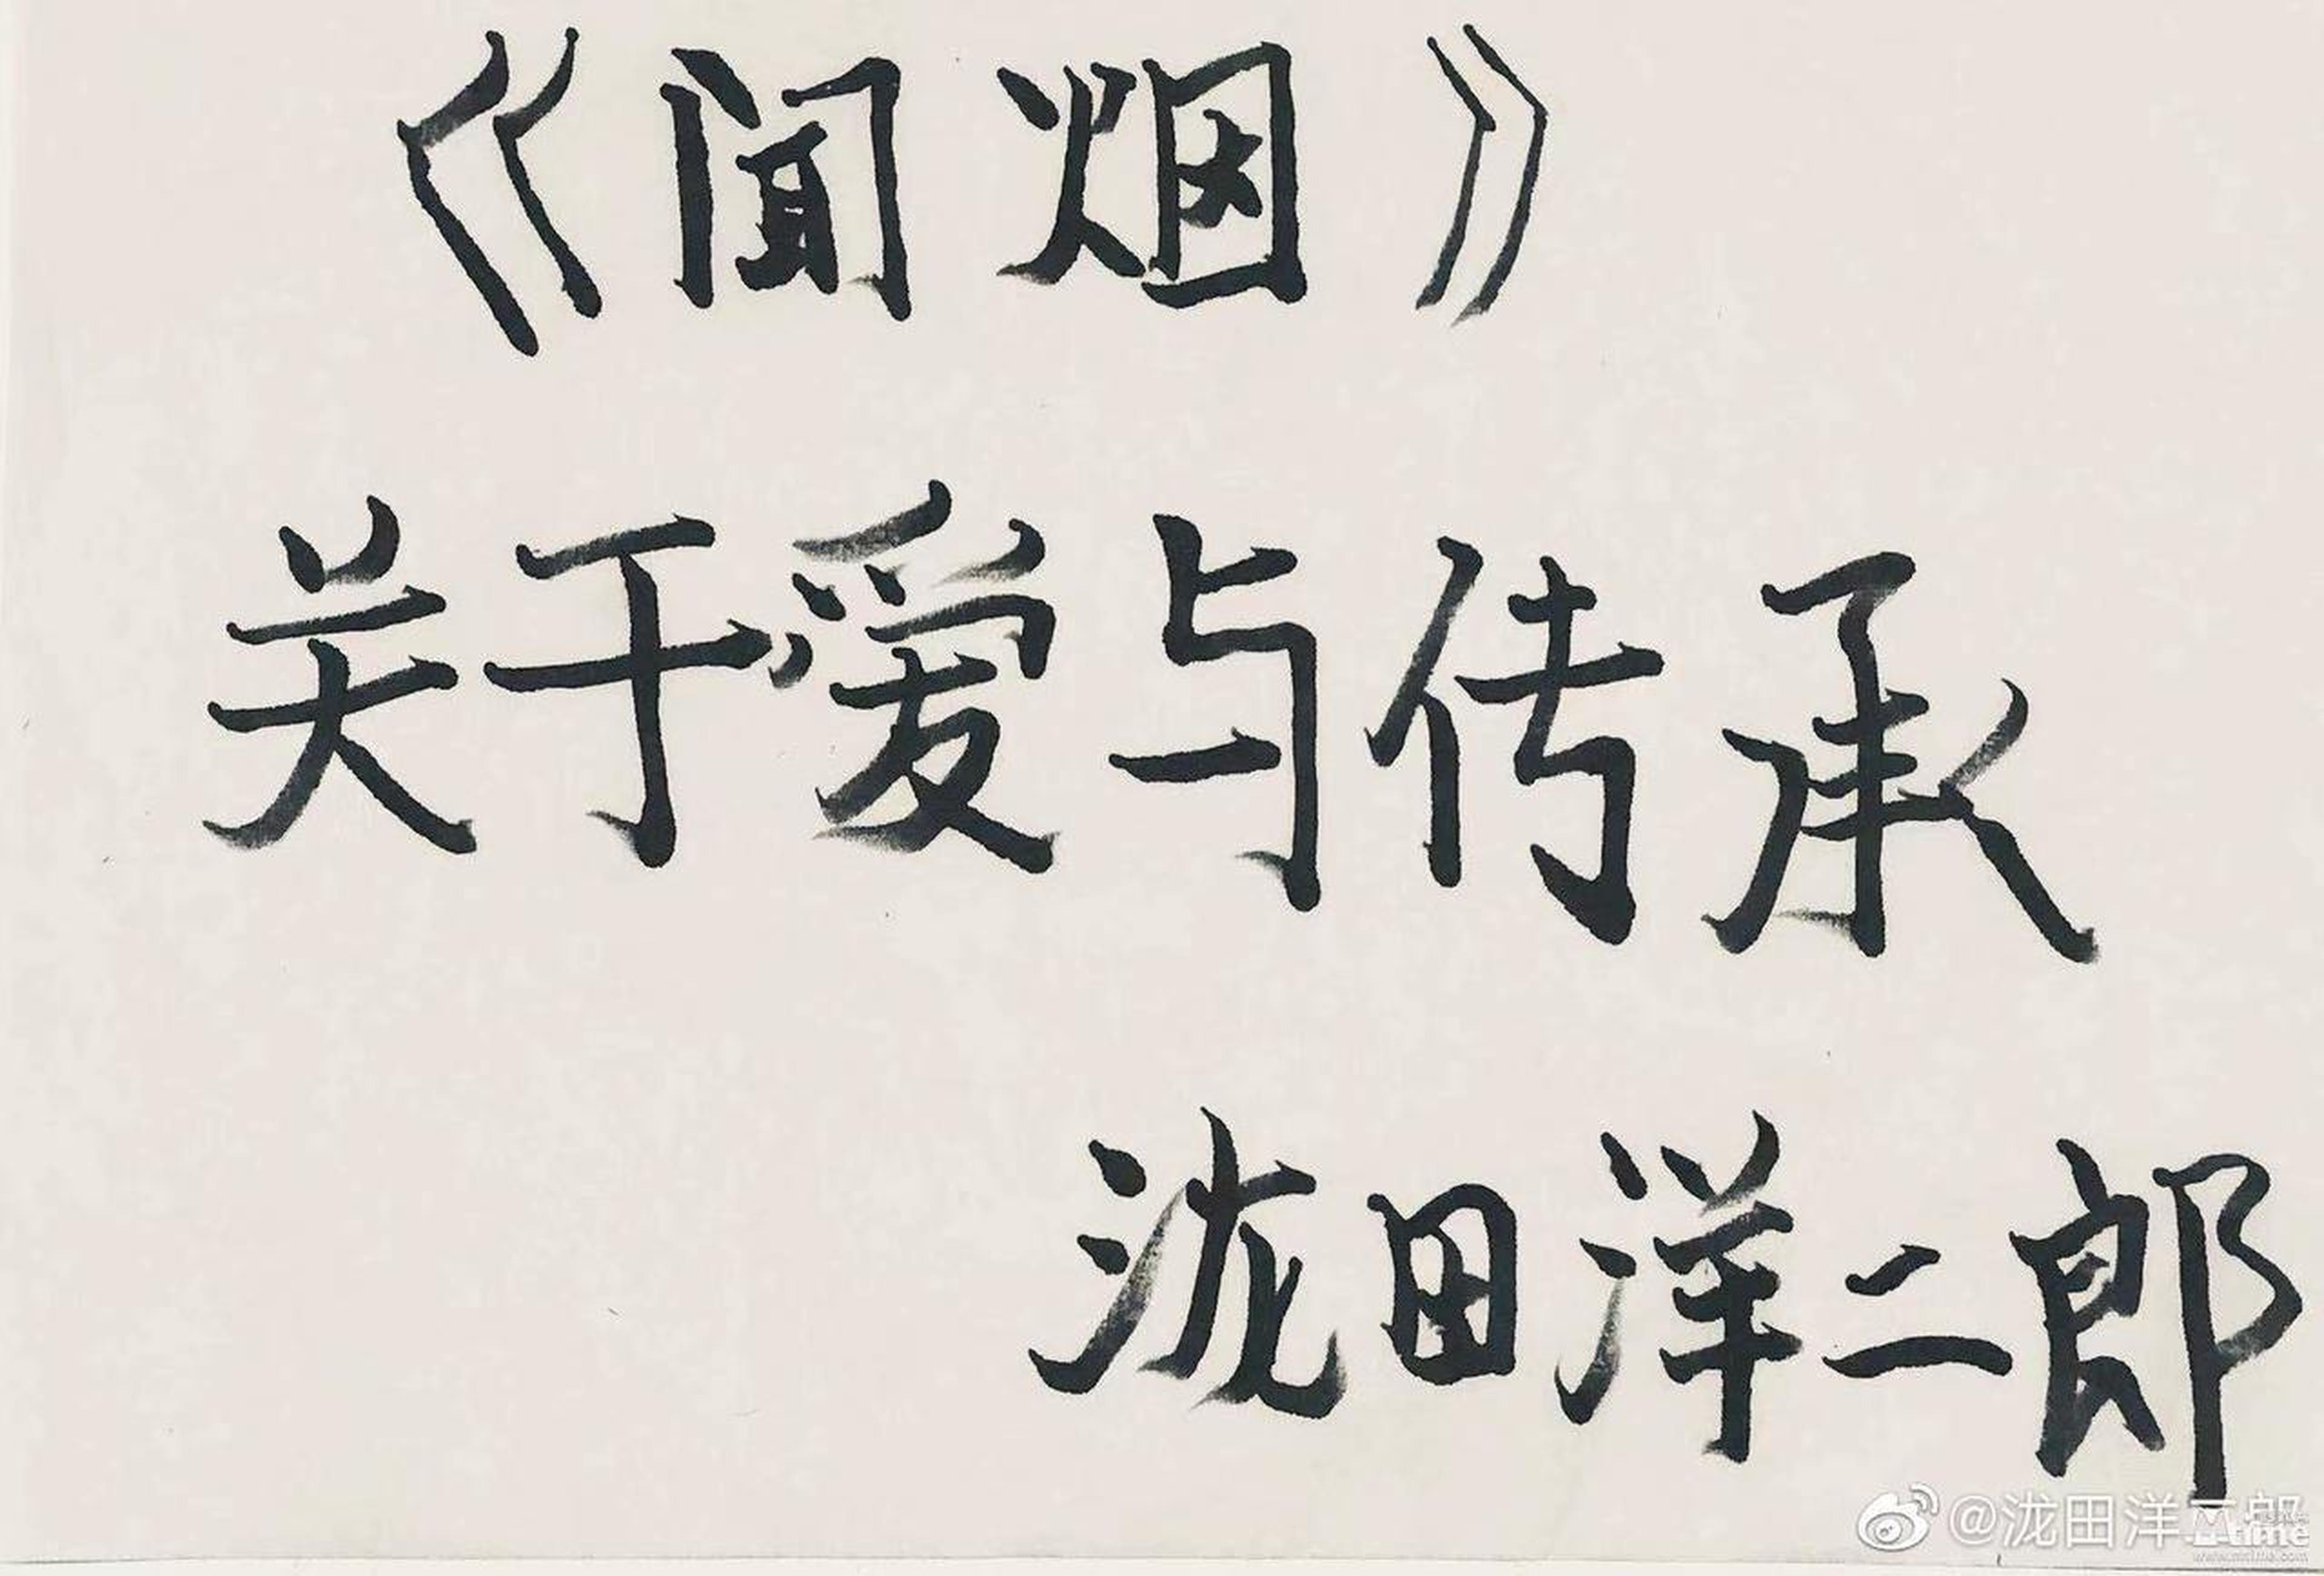 《闻烟》
关于爱与传承
泷田洋二郎
@泷田洋二郎
Mtime
www.mtime.com